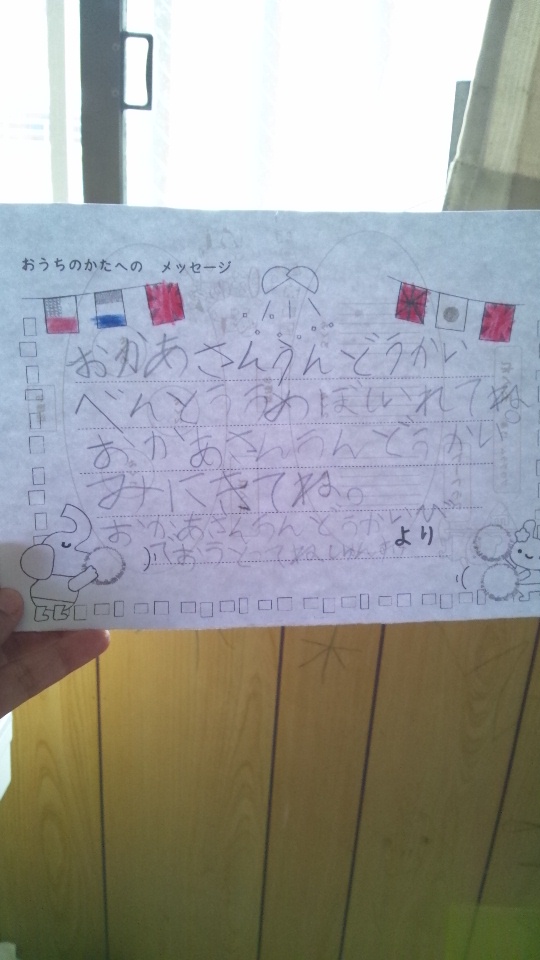 おうちのかたへの メッセージ
おかあさんうんどうかい
べんとううめぼしいれてね。
おかあさんうんどうかい
みにきてね。
おかあさんうんどうかい
より